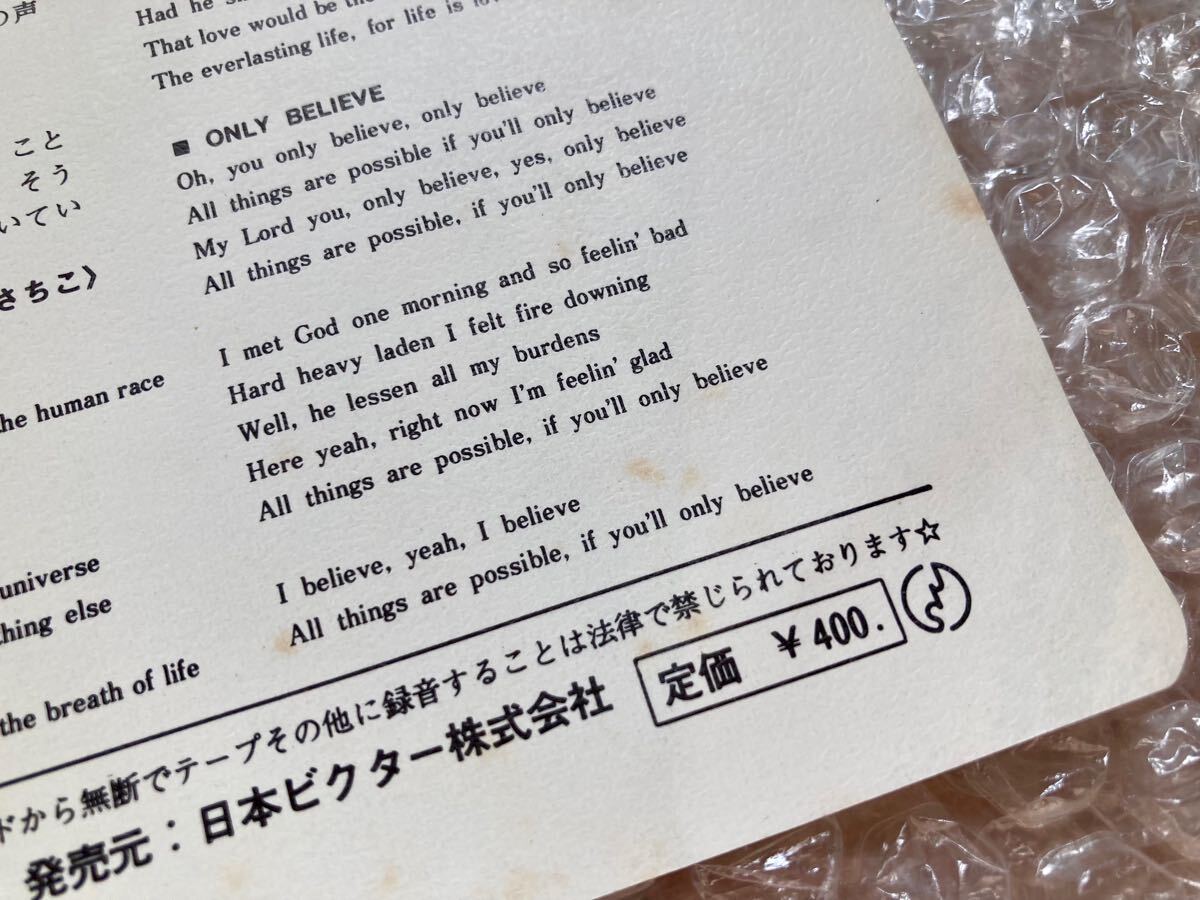 の声
こと
そう
いてい
さちこ〉
the human race
universe
thing else
the breath of life
Had he
That love would be the
The everlasting life, for life is
■ ONLY BELIEVE
Oh, you only believe, only believe
All things are possible if you'll only believe
My Lord you, only believe, yes, only believe
All things are possible, if you'll only believe
I met God one morning and so feelin' bad
Hard heavy laden I felt fire downing
Well, he lessen all my burdens
Here yeah, right now I'm feelin' glad
All things are possible, if you'll only believe
I believe, yeah, I believe
All things are possible, if you'll only believe
ドから無断でテープその他に録音することは法律で禁じられております☆
発売元：日本ビクター株式会社 定価 ¥400.